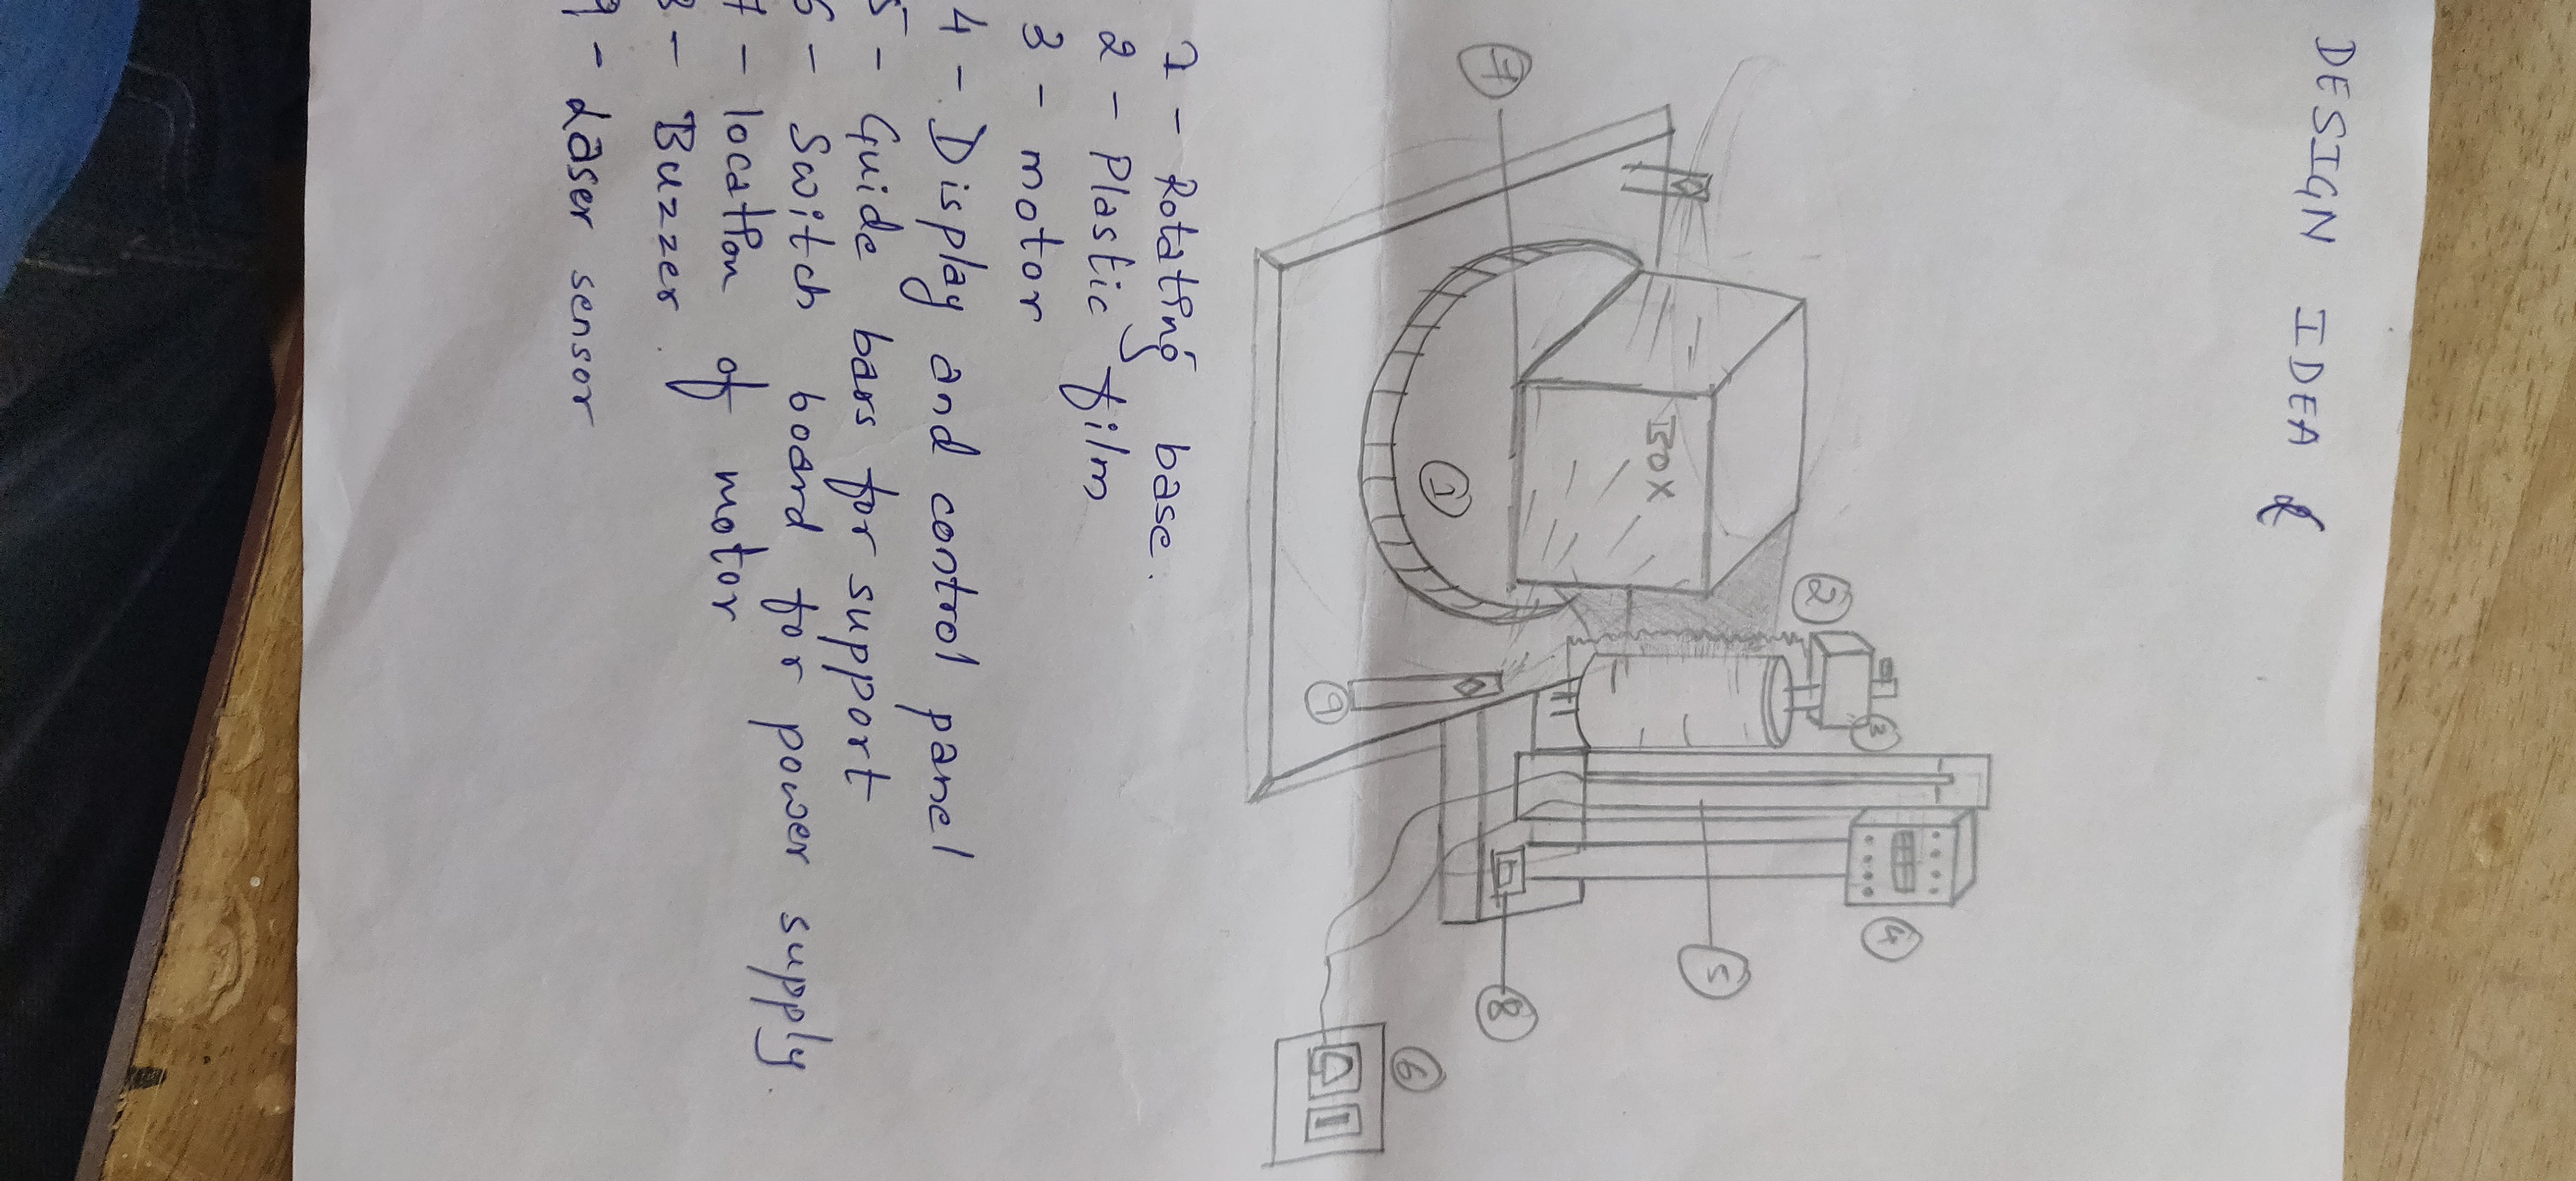 DESIGN IDEA
7
BOX
1
2
3
4
5
6
8
9
1 - Rotating base.
2 - Plastic film
3 - motor
4 - Display and control panel
5 - Guide bars for support
6 - Switch board for power supply.
7 - location of motor
8 - Buzzer.
9 - Laser sensor